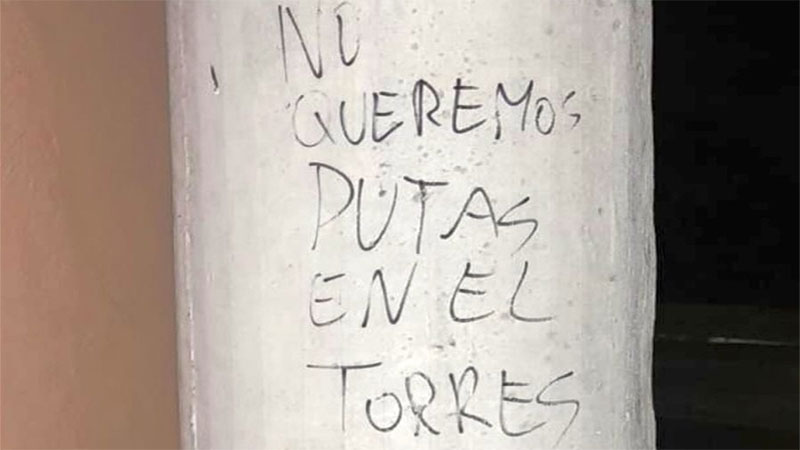 NO
QUEREMOS
PUTAS
EN EL
TORRES